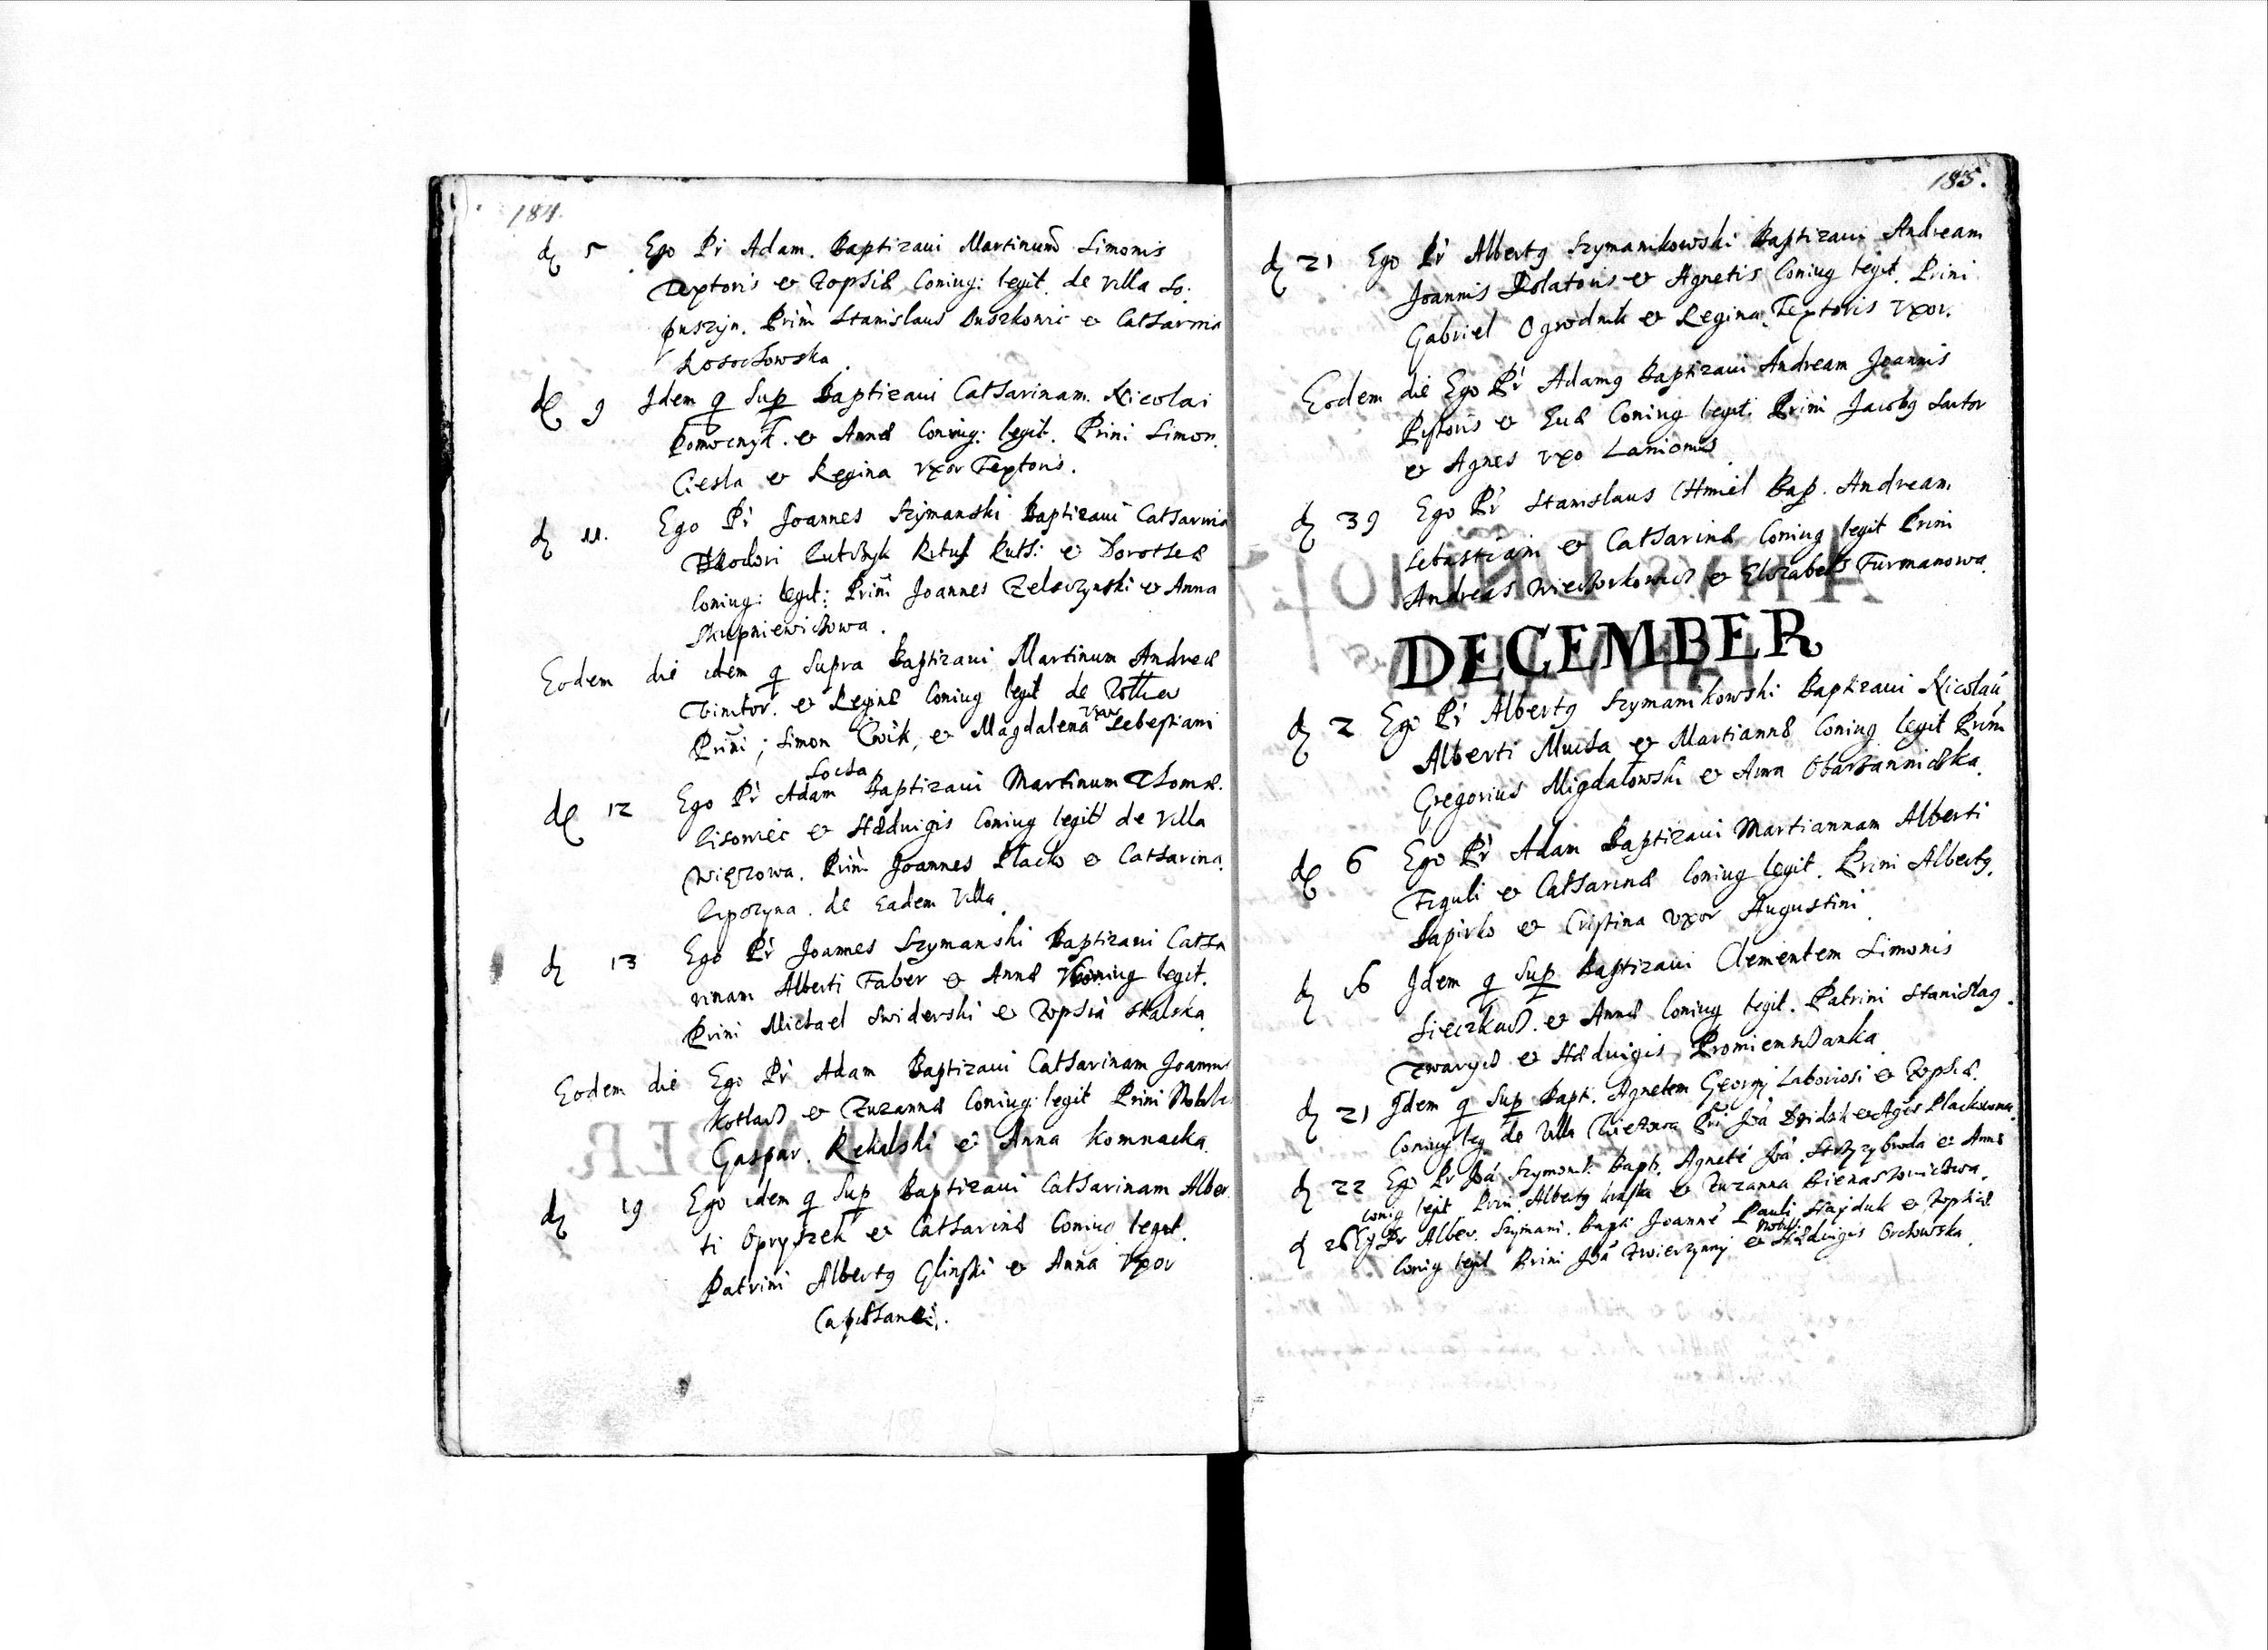 184.
d 5 Ego Pr Adam. Baptizaui Martinum Simonis
Textoris et Zophiæ Coniug: legit. de villa Lo:
puszyn. Prini Stanislaus Duszkowic et Catharina
Rosochowska.
de 9 Idem q Sup Baptizaui Catharinam. Nicolai
Pomocnyk. et Annæ Coniug: legit. Prini Simon.
Ciesla et Regina vxor Textoris.
d 11. Ego Pr Joannes Szymanski Baptizaui Catharina
Theodori Ruth: et Dorotheæ
Coniug: legit: Prini Joannes et Anna
Skupniewichowa.
Eodem die idem q supra Baptizaui Martinum Andreæ
Vinctor. et Reginæ Coniug legit de
Prini; Simon Cwik, et Magdalena vxor Sebestiani
Socha
de 12 Ego Pr Adam Baptizaui Martinum Thomæ.
Lisowiec et Hædvigis Coniug legit de Villa
Więzowa. Prini Joannes Placko et Catharina.
de Eadem Villa.
d 13 Ego Pr Joannes Szymanski Baptizaui Catha
rinam Alberti Faber et Annæ Coniug legit.
Prini Michael Swiderski et Zophia Skalska.
Eodem die Ego Pr Adam Baptizaui Catharinam Joannis
Kotlach et Zuzannæ Coniug: legit Prini Nobile
Gaspar. Rekalski et Anna Komnacka.
d 19 Ego idem q Sup Baptizaui Catharinam Alber
ti Opryszek et Catharinæ Coniug legit.
Patrini Albertg Glinski et Anna Vxor
185.
d 21 Ego Pr Albertg Szymanikowski Baptizaui Andream
Joannis Dolatoris et Agnetis Coniug legit. Prini
Gabriel Ogrodnik et Regina Textoris vxor.
Eodem die Ego Pr Adamg Baptizaui Andream Joannis
Pistoris et Euæ Coniug legit. Prini Jacobg Sartor
et Agnes vxo Lanionis
d 39 Ego Pr Stanislaus Chmiel Bap. Andream
Sebastiani et Catharinæ Coniug legit Prini
Andreas Wiechorkowicz et Elizabeth Furmanowa.
DECEMBER
d 2 Ego Pr Albertg Szymanikowski Baptizaui Nicolaū
Alberti Mucha et Martiannæ Coniug legit Prini
Gregorius Migdalowski et Anna Obarzannichka.
de 6 Ego Pr Adam Baptizaui Martiannam Alberti
Figuli et Catharinæ Coniug legit. Prini Albertg.
Papirko et Cristina vxor Augustini.
d 16 Idem q Sup Baptizaui Clementem Simonis
Sieczkach. et Annæ Coniug legit. Patrini Stanislag.
Twarych et Hædvigis Promienchanka.
d 21 Idem q Sup Bapt. Agnetem Georgij Laboriosi et Zophiæ.
Coniug leg de Villa Pri Joā et Agēs Plackowna.
d 22 Ego Pr Joā Szymons: Bapt. Agnetē Joā. Strzyzybroda et Annæ
Coniig legit Prini Albertg et Zuzanna Bienaszowichwa.
d 26 Ego Pr Alber. Szymani. Bapti Joannē Pauli Hajduk et Zophiæ
Coniig legit Prini Joā Zwierzynny et Nobil: Hædvigis Orchowska.